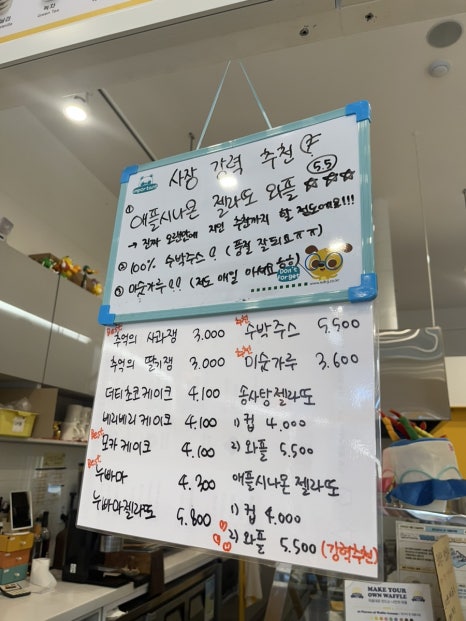 녹차
Green Tea
Important
사장 강력 추천
① 애플시나몬 젤라또 와플 5.5 ☆☆☆
→ 진짜 오랜만에 지인 추천까지 할 정도에요!!!
② 100% 수박주스!! (품절 잘되요ㅠㅠ)
③ 미숫가루!! (저도 매일 마셔요
Don't forget
Best 추억의 사과잼 3.000
추억의 딸기잼 3.000
더티초코케이크 4.100
베리베리케이크 4.100
Best 모카케이크 4.100
Best 누바아 4.300
누바아젤라또 5.800
추천 수박주스 5.500
추천 미숫가루 3.600
송사탕젤라또
1) 컵 4.000
2) 와플 5.500
애플시나몬 젤라또
1) 컵 4.000
2) 와플 5.500 (강력추천)
MAKE YOUR
OWN WAFFLE